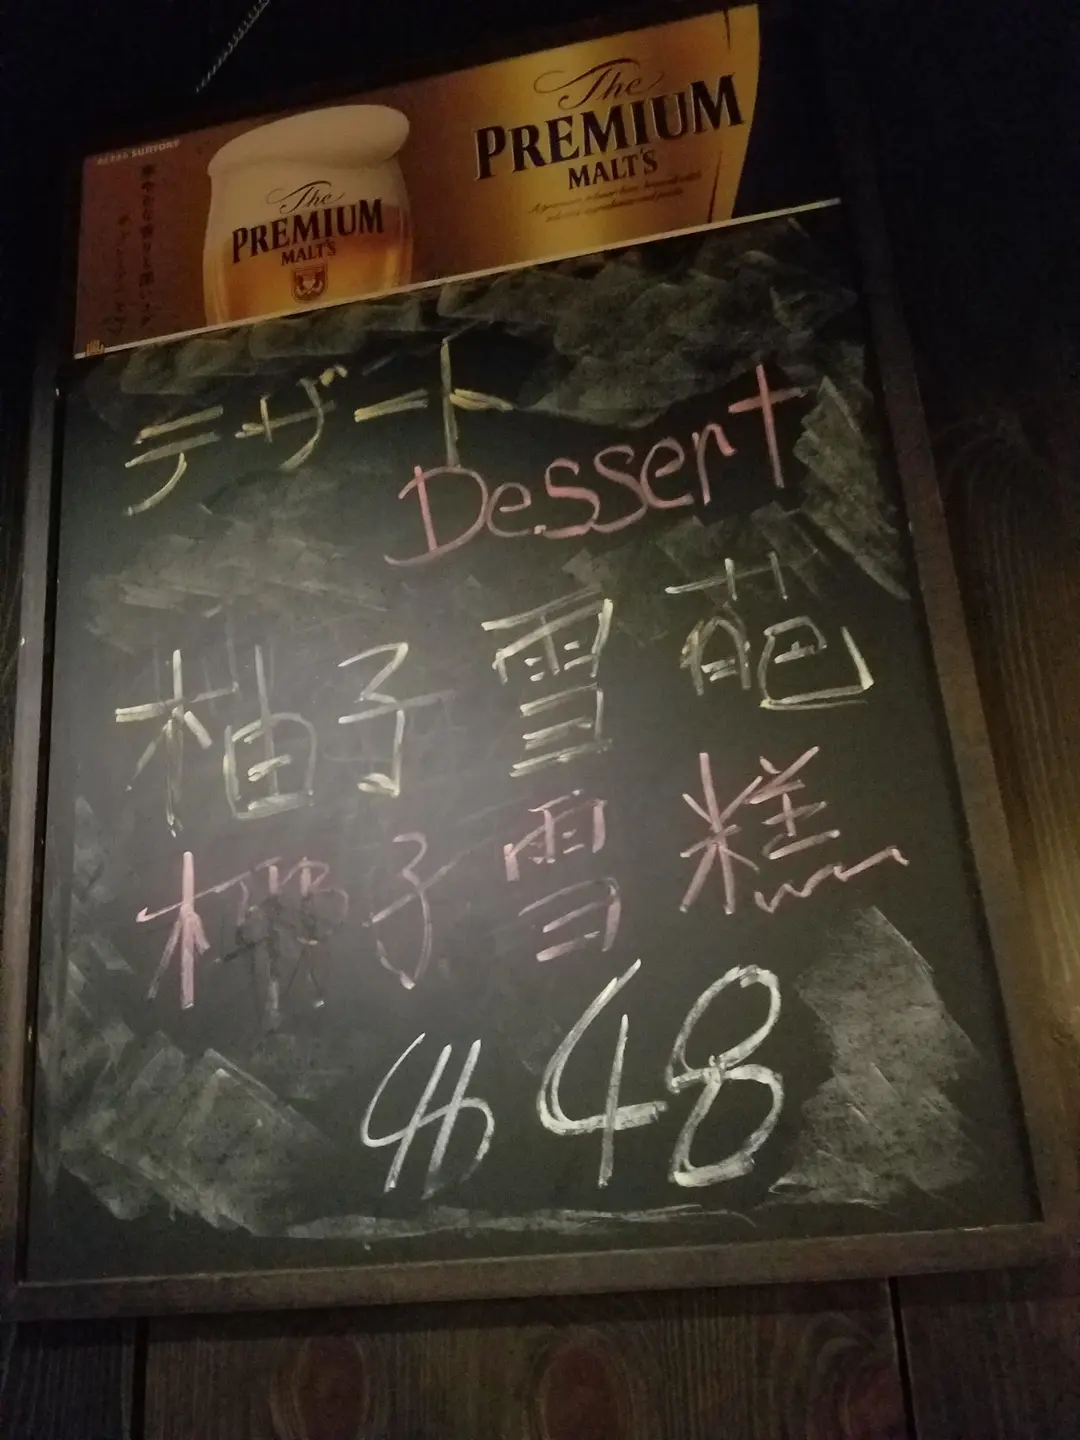 SUNTORY
The
PREMIUM
MALT'S
The
PREMIUM
MALT'S
デザート
Dessert
柚子雪葩
椰子雪糕
$48